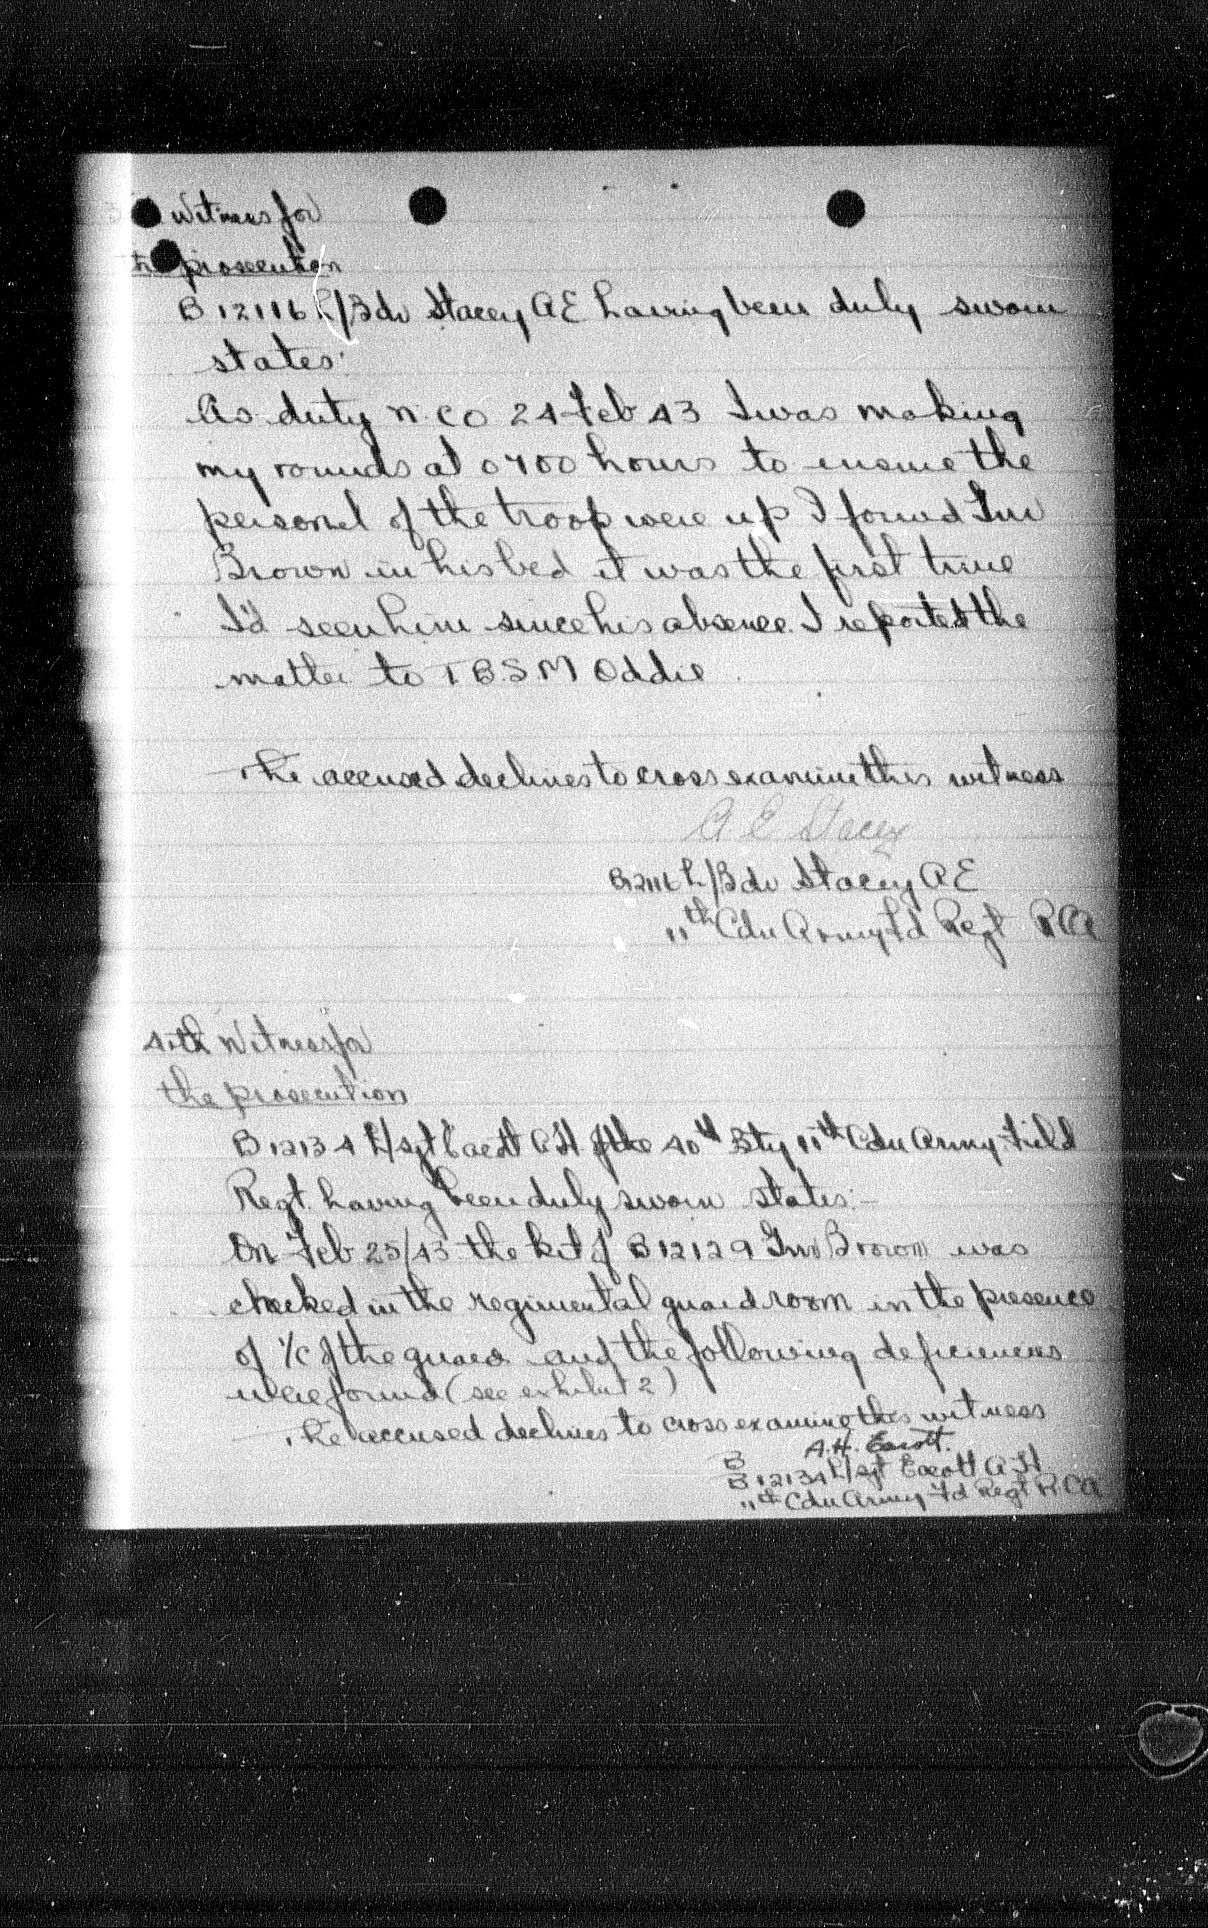 Witness for
the prosecution
B 12116 L/Bdr Stacey A E having been duly sworn
states:
As duty N.C O 24 Feb 43 I was making
my rounds at 0700 hours to ensure the
personel of the troop were up I found Gnr
Brown in his bed it was the first time
I'd seen him since his absence. I reported the
matter to T B.S.M Oddie
The accused declines to cross examine this witness
A E Stacey
B12116 L/Bdr Stacey A E
11th Cdn Army Fd Regt RCA
4th Witness for
the prosecution
B 12134 L/Sgt Eacott A H of the 40th Bty 11th Cdn Army Field
Regt. having been duly sworn states:-
On Feb 25/43 the kit of B 12129 Gnr Brown was
checked in the regimental guard room in the presence
of I/C of the guard and the following deficiencies
were found (see exhibit 2)
The accused declines to cross examine this witness
A.H. Eacott.
B
B 12134 L/Sgt Eacott A H
11th Cdn Army Fd Regt R.C.A